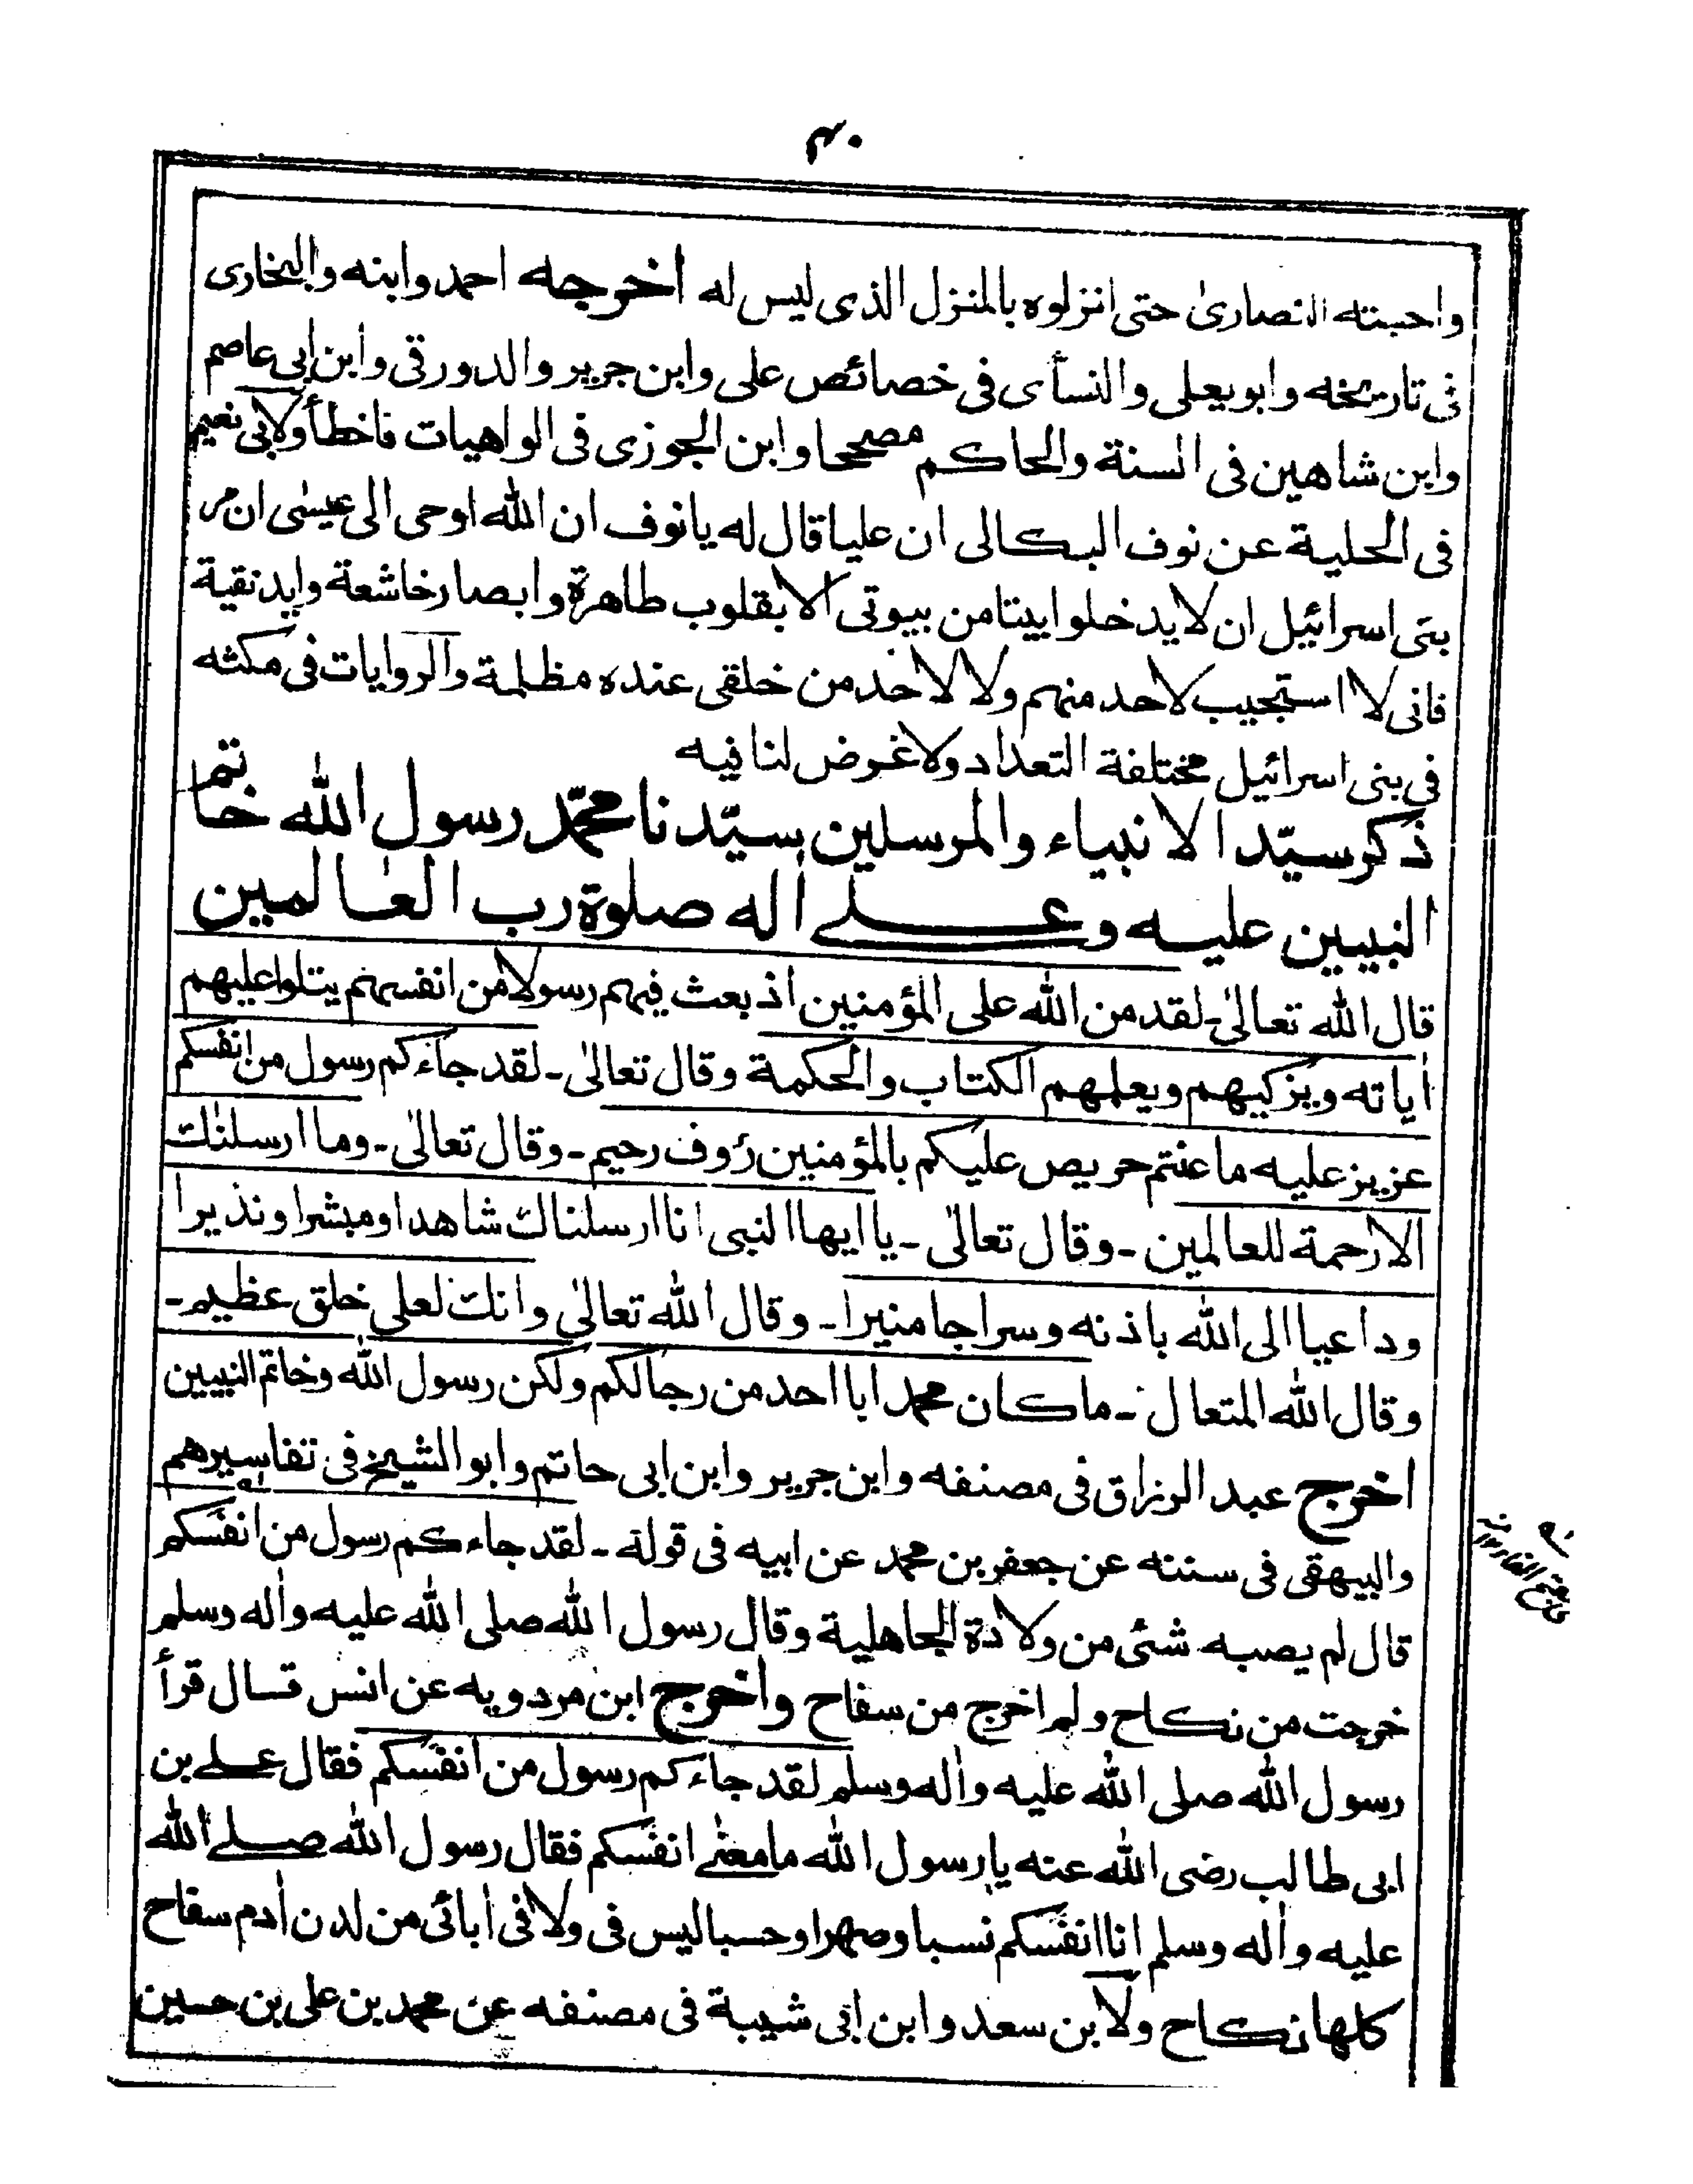 ۴۰
واحبته النصاریٰ حتی انزلوه بالمنزل الذی لیس له اخرجه احمد وابنه والبخاری
فی تاریخه وابویعلی والنسأی فی خصائص علی وابن جریر والدورقی وابن ابی عاصم
وابن شاهین فی السنة والحاکم مصححا وابن الجوزی فی الواهیات فاخطأ ولابی نعیم
فی الحلیة عن نوف البکالی ان علیا قال له یانوف ان الله اوحی الی عیسٰی ان مر
بنی اسرائیل ان لا یدخلوا بیتا من بیوتی الا بقلوب طاهرة وابصار خاشعة واید نقیة
فانی لا استجیب لاحد منهم ولا لاحد من خلقی عنده مظلمة والروایات فی مکثه
فی بنی اسرائیل مختلفة التعداد ولا غرض لنا فیه
ذکر سیّد الانبیاء والمرسلین سیّدنا محمّد رسول الله خاتم
النبیین علیه وعلے اٰله صلوة رب العٰالمین
قال الله تعالیٰ۔ لقد من الله علی المؤمنین اذ بعث فیهم رسولا من انفسهم یتلوا علیهم
اٰیاته ویزکیهم ویعلمهم الکتاب والحکمة وقال تعالیٰ۔ لقد جاءکم رسول من انفسکم
عزیز علیه ما عنتم حریص علیکم بالمؤمنین رؤف رحیم۔ وقال تعالیٰ۔ وما ارسلنٰك
الا رحمة للعالمین۔ وقال تعالیٰ۔ یا ایها النبی انا ارسلناك شاهدا ومبشرا ونذیرا
وداعیا الی الله باذنه وسراجا منیرا۔ وقال الله تعالیٰ وانك لعلی خلق عظیم۔
وقال الله المتعال۔ ما کان محمد ابا احد من رجالکم ولکن رسول الله وخاتم النبیین
اخرج عبد الرزاق فی مصنفه وابن جریر وابن ابی حاتم وابو الشیخ فی تفاسیرهم
والبیهقی فی سننه عن جعفر بن محمد عن ابیه فی قوله۔ لقد جاءکم رسول من انفسکم
قال لم یصبه شئی من ولادة الجاهلیة وقال رسول الله صلی الله علیه واٰله وسلم
خرجت من نکاح ولم اخرج من سفاح واخرج ابن مردویه عن انس قال قرأ
رسول الله صلی الله علیه واٰله وسلم لقد جاءکم رسول من انفَسکم فقال علے بن
ابی طالب رضی الله عنه یا رسول الله ما معنٰے انفَسکم فقال رسول الله صلے الله
علیه واٰله وسلم انا انفَسکم نسبا وصهرا وحسبا لیس فی ولا فی اٰبائی من لدن اٰدم سفاح
کلها نکاح ولابن سعد وابن ابی شیبة فی مصنفه عن محمد بن علی بن حسین